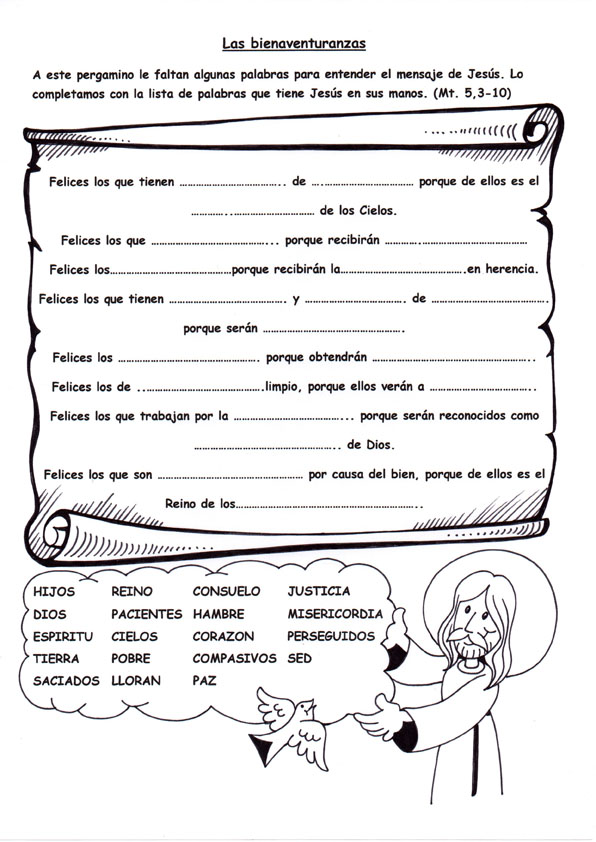 Las bienaventuranzas
A este pergamino le faltan algunas palabras para entender el mensaje de Jesús. Lo
completamos con la lista de palabras que tiene Jesús en sus manos. (Mt. 5,3-10)
Felices los que tienen ………………………………….. de ……………………………… porque de ellos es el
…………..………………………… de los Cielos.
Felices los que ……………………………………... porque recibirán …………..………………………………
Felices los……………………………………porque recibirán la…………………………………….en herencia.
Felices los que tienen …………………………………… y ……………………………… de …………………………………….
porque serán …………………………………………….
Felices los …………………………………………… porque obtendrán …………………………………………………..
Felices los de ..…………………………………….limpio, porque ellos verán a ………………………………..
Felices los que trabajan por la …………………………………... porque serán reconocidos como
…………………………………………….. de Dios.
Felices los que son ……………………………………………… por causa del bien, porque de ellos es el
Reino de los…………………………………………………………..
HIJOS REINO CONSUELO JUSTICIA
DIOS PACIENTES HAMBRE MISERICORDIA
ESPIRITU CIELOS CORAZON PERSEGUIDOS
TIERRA POBRE COMPASIVOS SED
SACIADOS LLORAN PAZ